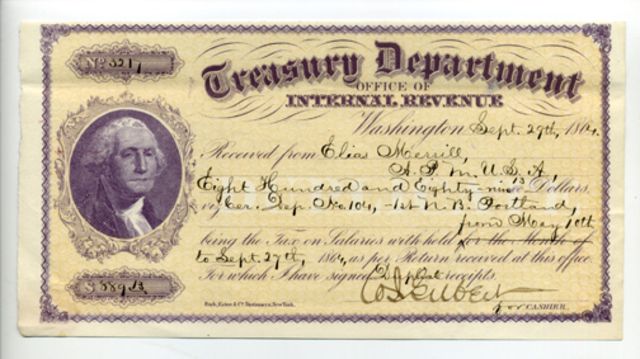 No 3217
Treasury Department
OFFICE OF
INTERNAL REVENUE
Washington Sept. 29th, 1864.
Received from Elias Merrill,
A. P. M. U. S. A,
Eight Hundred and Eighty nine 13 Dollars,
Cer. Dep. No. 104, 1st N. B. Portland,
from May 10th
being the Tax on Salaries with held for the Month of
to Sept. 27th, 1864, as per Return received at this office.
For which I have signed receipts.
$ 889.13
for CASHIER.